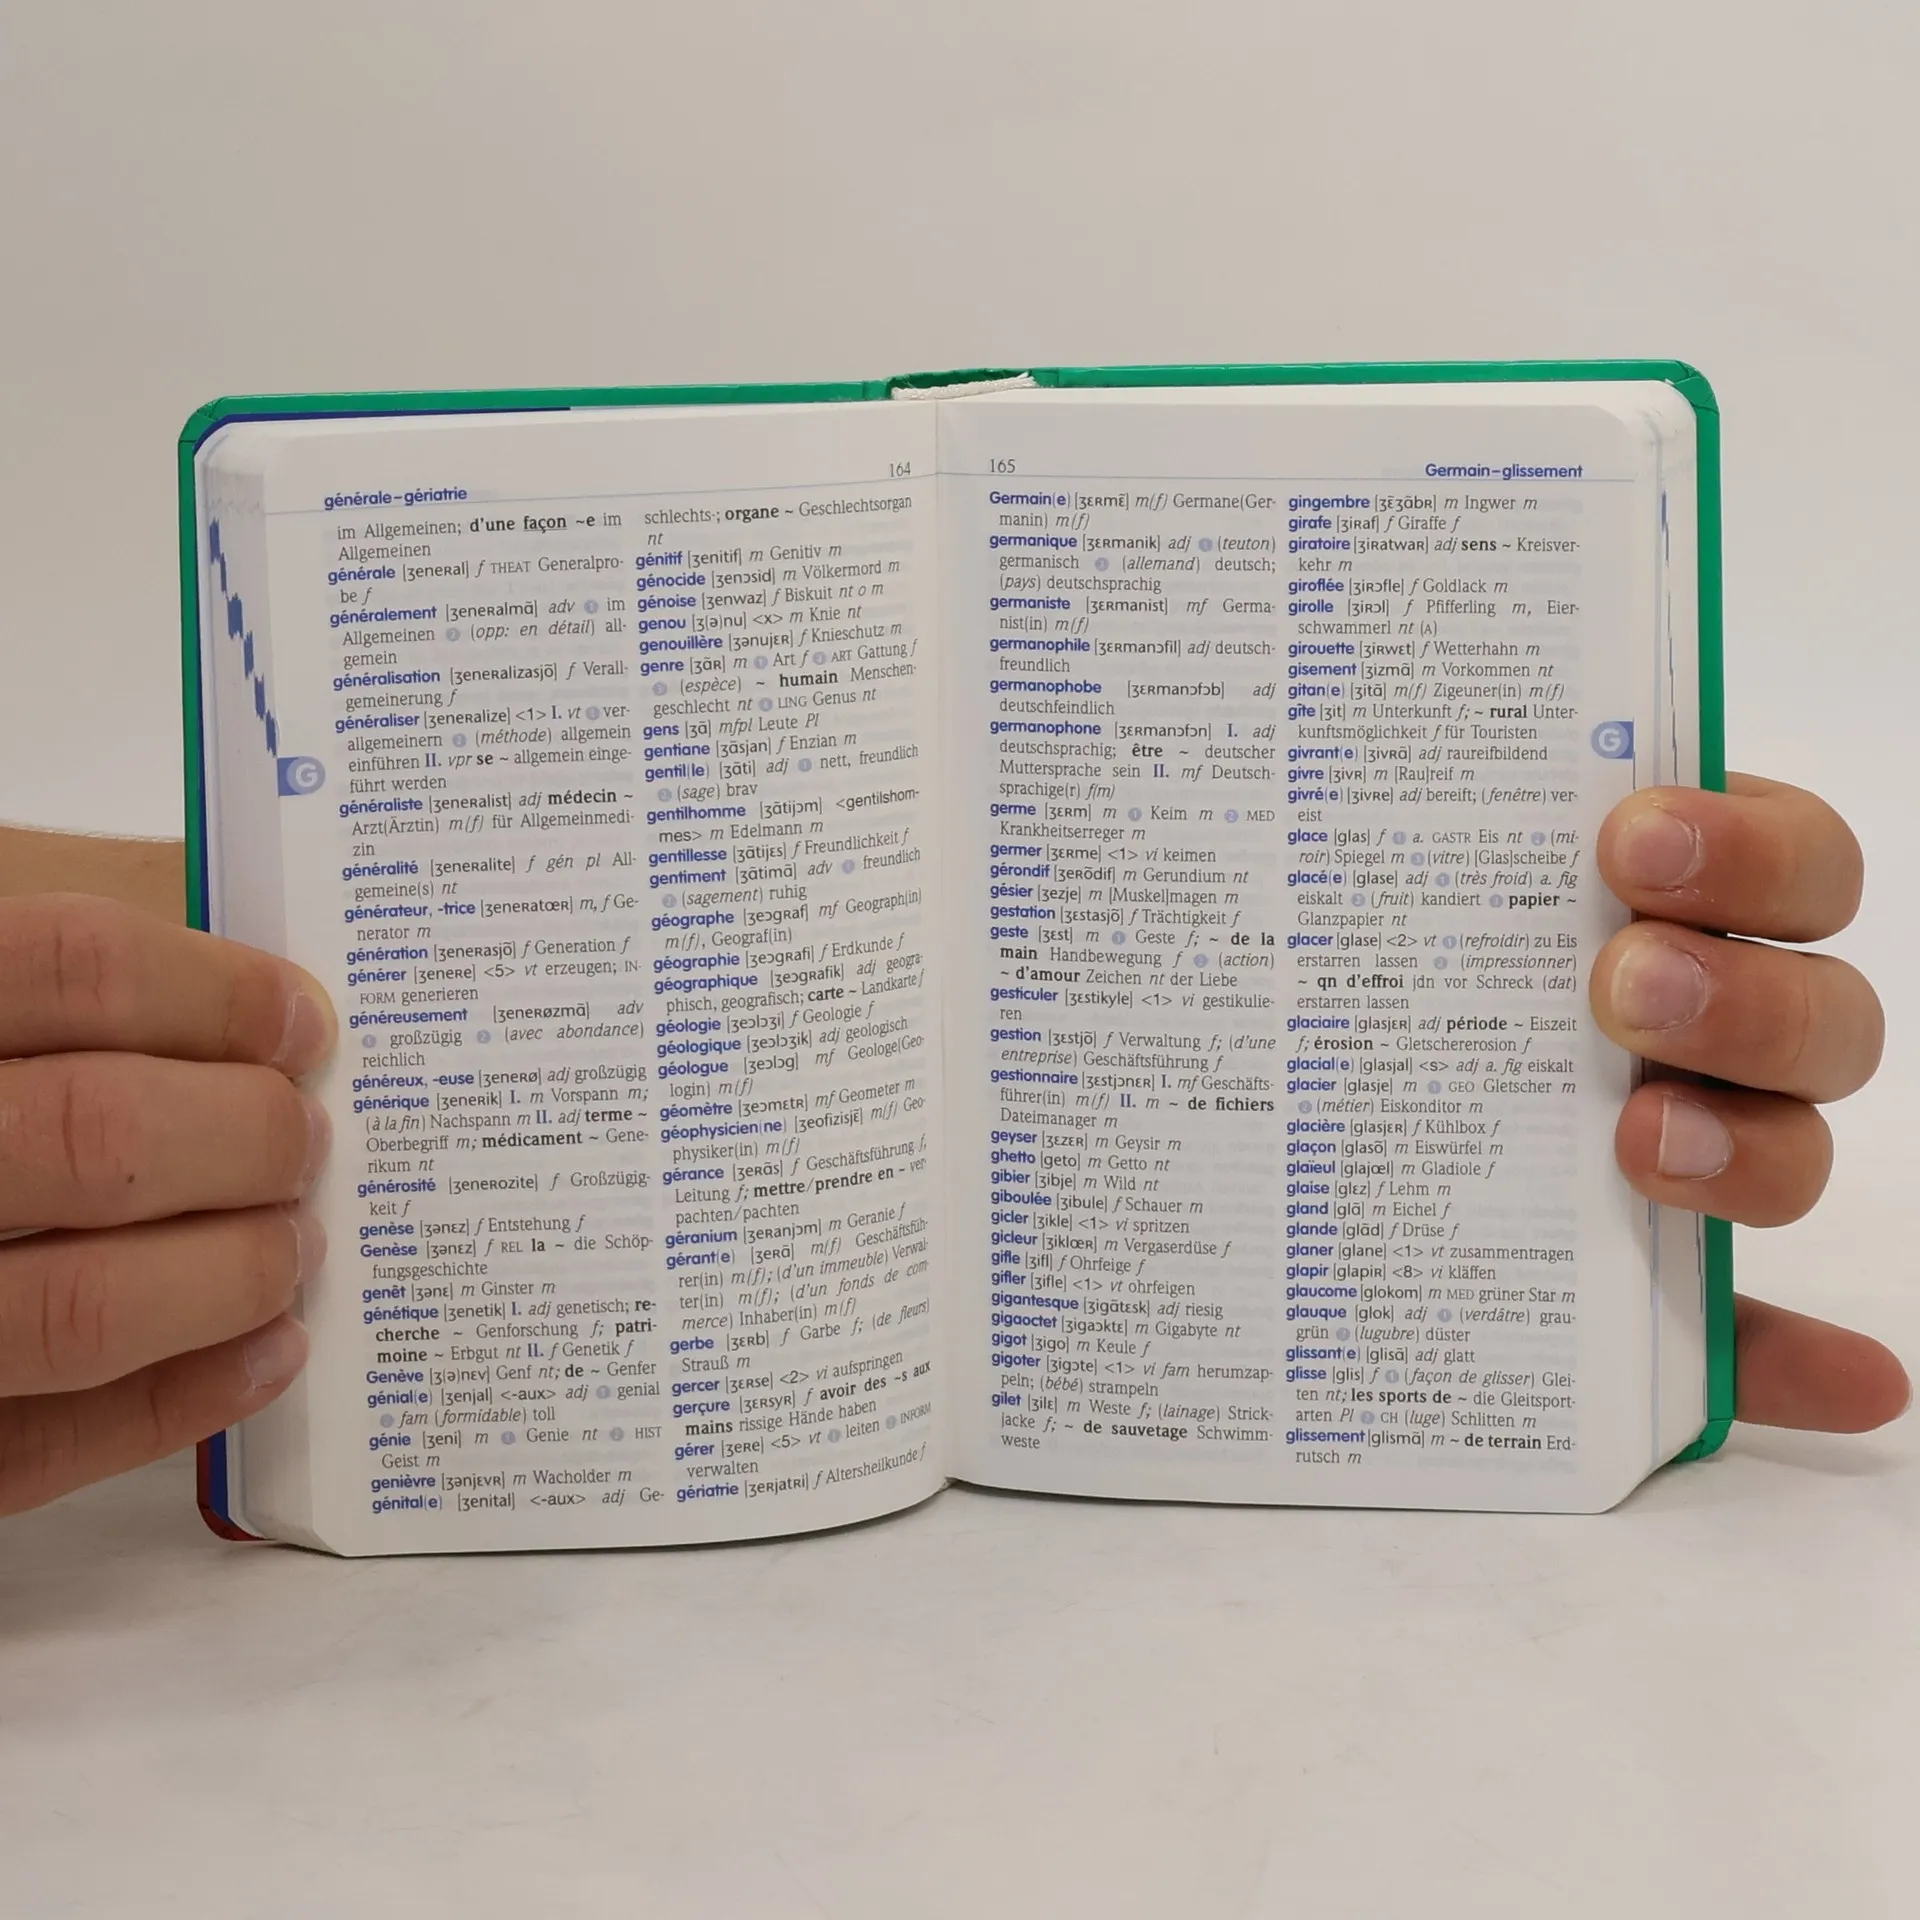 générale–gériatrie
164
im Allgemeinen; d'une façon ~e im
Allgemeinen
générale [ʒeneʀal] f THEAT Generalpro-
be f
généralement [ʒeneʀalmɑ̃] adv ❶ im
Allgemeinen ❷ (opp: en détail) all-
gemein
généralisation [ʒeneʀalizasjɔ̃] f Verall-
gemeinerung f
généraliser [ʒeneʀalize] <1> I. vt ❶ ver-
allgemeinern ❷ (méthode) allgemein
einführen II. vpr se ~ allgemein einge-
führt werden
généraliste [ʒeneʀalist] adj médecin ~
Arzt(Ärztin) m(f) für Allgemeinmedi-
zin
généralité [ʒeneʀalite] f gén pl All-
gemeine(s) nt
générateur, -trice [ʒeneʀatœʀ] m, f Ge-
nerator m
génération [ʒeneʀasjɔ̃] f Generation f
générer [ʒeneʀe] <5> vt erzeugen; IN-
FORM generieren
généreusement [ʒeneʀøzmɑ̃] adv
❶ großzügig ❷ (avec abondance)
reichlich
généreux, -euse [ʒeneʀø] adj großzügig
générique [ʒeneʀik] I. m Vorspann m;
(à la fin) Nachspann m II. adj terme ~
Oberbegriff m; médicament ~ Gene-
rikum nt
générosité [ʒeneʀozite] f Großzügig-
keit f
genèse [ʒənɛz] f Entstehung f
Genèse [ʒənɛz] f REL la ~ die Schöp-
fungsgeschichte
genêt [ʒənɛ] m Ginster m
génétique [ʒenetik] I. adj genetisch; re-
cherche ~ Genforschung f; patri-
moine ~ Erbgut nt II. f Genetik f
Genève [ʒ(ə)nɛv] Genf nt; de ~ Genfer
génial(e) [ʒenjal] <-aux> adj ❶ genial
❷ fam (formidable) toll
génie [ʒeni] m ❶ Genie nt ❷ HIST
Geist m
genièvre [ʒənjɛvʀ] m Wacholder m
génital(e) [ʒenital] <-aux> adj Ge-
schlechts-; organe ~ Geschlechtsorgan
nt
génitif [ʒenitif] m Genitiv m
génocide [ʒenɔsid] m Völkermord m
génoise [ʒenwaz] f Biskuit nt o m
genou [ʒ(ə)nu] <x> m Knie nt
genouillère [ʒənujɛʀ] f Knieschutz m
genre [ʒɑ̃ʀ] m ❶ Art f ❷ ART Gattung f
❸ (espèce) ~ humain Menschen-
geschlecht nt ❹ LING Genus nt
gens [ʒɑ̃] mfpl Leute Pl
gentiane [ʒɑ̃sjan] f Enzian m
gentil(le) [ʒɑ̃ti] adj ❶ nett, freundlich
❷ (sage) brav
gentilhomme [ʒɑ̃tijɔm] <gentilshom-
mes> m Edelmann m
gentillesse [ʒɑ̃tijɛs] f Freundlichkeit f
gentiment [ʒɑ̃timɑ̃] adv ❶ freundlich
❷ (sagement) ruhig
géographe [ʒeɔgʀaf] mf Geograph(in)
m(f), Geograf(in)
géographie [ʒeɔgʀafi] f Erdkunde f
géographique [ʒeɔgʀafik] adj geogra-
phisch, geografisch; carte ~ Landkarte f
géologie [ʒeɔlɔʒi] f Geologie f
géologique [ʒeɔlɔʒik] adj geologisch
géologue [ʒeɔlɔg] mf Geologe(Geo-
login) m(f)
géomètre [ʒeɔmɛtʀ] mf Geometer m
géophysicien(ne) [ʒeofizisjɛ̃] m(f) Geo-
physiker(in) m(f)
gérance [ʒeʀɑ̃s] f Geschäftsführung f,
Leitung f; mettre/prendre en ~ ver-
pachten/pachten
géranium [ʒeʀanjɔm] m Geranie f
gérant(e) [ʒeʀɑ̃] m(f) Geschäftsfüh-
rer(in) m(f); (d'un immeuble) Verwal-
ter(in) m(f); (d'un fonds de com-
merce) Inhaber(in) m(f)
gerbe [ʒɛʀb] f Garbe f; (de fleurs)
Strauß m
gercer [ʒɛʀse] <2> vi aufspringen
gerçure [ʒɛʀsyʀ] f avoir des ~s aux
mains rissige Hände haben
gérer [ʒeʀe] <5> vt ❶ leiten ❷ INFORM
verwalten
gériatrie [ʒeʀjatʀi] f Altersheilkunde f
G
165
Germain–glissement
Germain(e) [ʒɛʀmɛ̃] m(f) Germane(Ger-
manin) m(f)
germanique [ʒɛʀmanik] adj ❶ (teuton)
germanisch ❷ (allemand) deutsch;
(pays) deutschsprachig
germaniste [ʒɛʀmanist] mf Germa-
nist(in) m(f)
germanophile [ʒɛʀmanɔfil] adj deutsch-
freundlich
germanophobe [ʒɛʀmanɔfɔb] adj
deutschfeindlich
germanophone [ʒɛʀmanɔfɔn] I. adj
deutschsprachig; être ~ deutscher
Muttersprache sein II. mf Deutsch-
sprachige(r) f(m)
germe [ʒɛʀm] m ❶ Keim m ❷ MED
Krankheitserreger m
germer [ʒɛʀme] <1> vi keimen
gérondif [ʒeʀɔ̃dif] m Gerundium nt
gésier [ʒezje] m [Muskel]magen m
gestation [ʒɛstasjɔ̃] f Trächtigkeit f
geste [ʒɛst] m ❶ Geste f; ~ de la
main Handbewegung f ❷ (action)
~ d'amour Zeichen nt der Liebe
gesticuler [ʒɛstikyle] <1> vi gestikulie-
ren
gestion [ʒɛstjɔ̃] f Verwaltung f; (d'une
entreprise) Geschäftsführung f
gestionnaire [ʒɛstjɔnɛʀ] I. mf Geschäfts-
führer(in) m(f) II. m ~ de fichiers
Dateimanager m
geyser [ʒɛzɛʀ] m Geysir m
ghetto [geto] m Getto nt
gibier [ʒibje] m Wild nt
giboulée [ʒibule] f Schauer m
gicler [ʒikle] <1> vi spritzen
gicleur [ʒiklœʀ] m Vergaserdüse f
gifle [ʒifl] f Ohrfeige f
gifler [ʒifle] <1> vt ohrfeigen
gigantesque [ʒigɑ̃tɛsk] adj riesig
gigaoctet [ʒigaɔktɛ] m Gigabyte nt
gigot [ʒigo] m Keule f
gigoter [ʒigɔte] <1> vi fam herumzap-
peln; (bébé) strampeln
gilet [ʒilɛ] m Weste f; (lainage) Strick-
jacke f; ~ de sauvetage Schwimm-
weste
gingembre [ʒɛ̃ʒɑ̃bʀ] m Ingwer m
girafe [ʒiʀaf] f Giraffe f
giratoire [ʒiʀatwaʀ] adj sens ~ Kreisver-
kehr m
giroflée [ʒiʀɔfle] f Goldlack m
girolle [ʒiʀɔl] f Pfifferling m, Eier-
schwammerl nt (A)
girouette [ʒiʀwɛt] f Wetterhahn m
gisement [ʒizmɑ̃] m Vorkommen nt
gitan(e) [ʒitɑ̃] m(f) Zigeuner(in) m(f)
gîte [ʒit] m Unterkunft f; ~ rural Unter-
kunftsmöglichkeit f für Touristen
givrant(e) [ʒivʀɑ̃] adj raureifbildend
givre [ʒivʀ] m [Rau]reif m
givré(e) [ʒivʀe] adj bereift; (fenêtre) ver-
eist
glace [glas] f ❶ a. GASTR Eis nt ❷ (mi-
roir) Spiegel m ❸ (vitre) [Glas]scheibe f
glacé(e) [glase] adj ❶ (très froid) a. fig
eiskalt ❷ (fruit) kandiert ❸ papier ~
Glanzpapier nt
glacer [glase] <2> vt ❶ (refroidir) zu Eis
erstarren lassen ❷ (impressionner)
~ qn d'effroi jdn vor Schreck (dat)
erstarren lassen
glaciaire [glasjɛʀ] adj période ~ Eiszeit
f; érosion ~ Gletschererosion f
glacial(e) [glasjal] <s> adj a. fig eiskalt
glacier [glasje] m ❶ GEO Gletscher m
❷ (métier) Eiskonditor m
glacière [glasjɛʀ] f Kühlbox f
glaçon [glasɔ̃] m Eiswürfel m
glaïeul [glajœl] m Gladiole f
glaise [glɛz] f Lehm m
gland [glɑ̃] m Eichel f
glande [glɑ̃d] f Drüse f
glaner [glane] <1> vt zusammentragen
glapir [glapiʀ] <8> vi kläffen
glaucome [glokom] m MED grüner Star m
glauque [glok] adj ❶ (verdâtre) grau-
grün ❷ (lugubre) düster
glissant(e) [glisɑ̃] adj glatt
glisse [glis] f ❶ (façon de glisser) Glei-
ten nt; les sports de ~ die Gleitsport-
arten Pl ❷ CH (luge) Schlitten m
glissement [glismɑ̃] m ~ de terrain Erd-
rutsch m
G